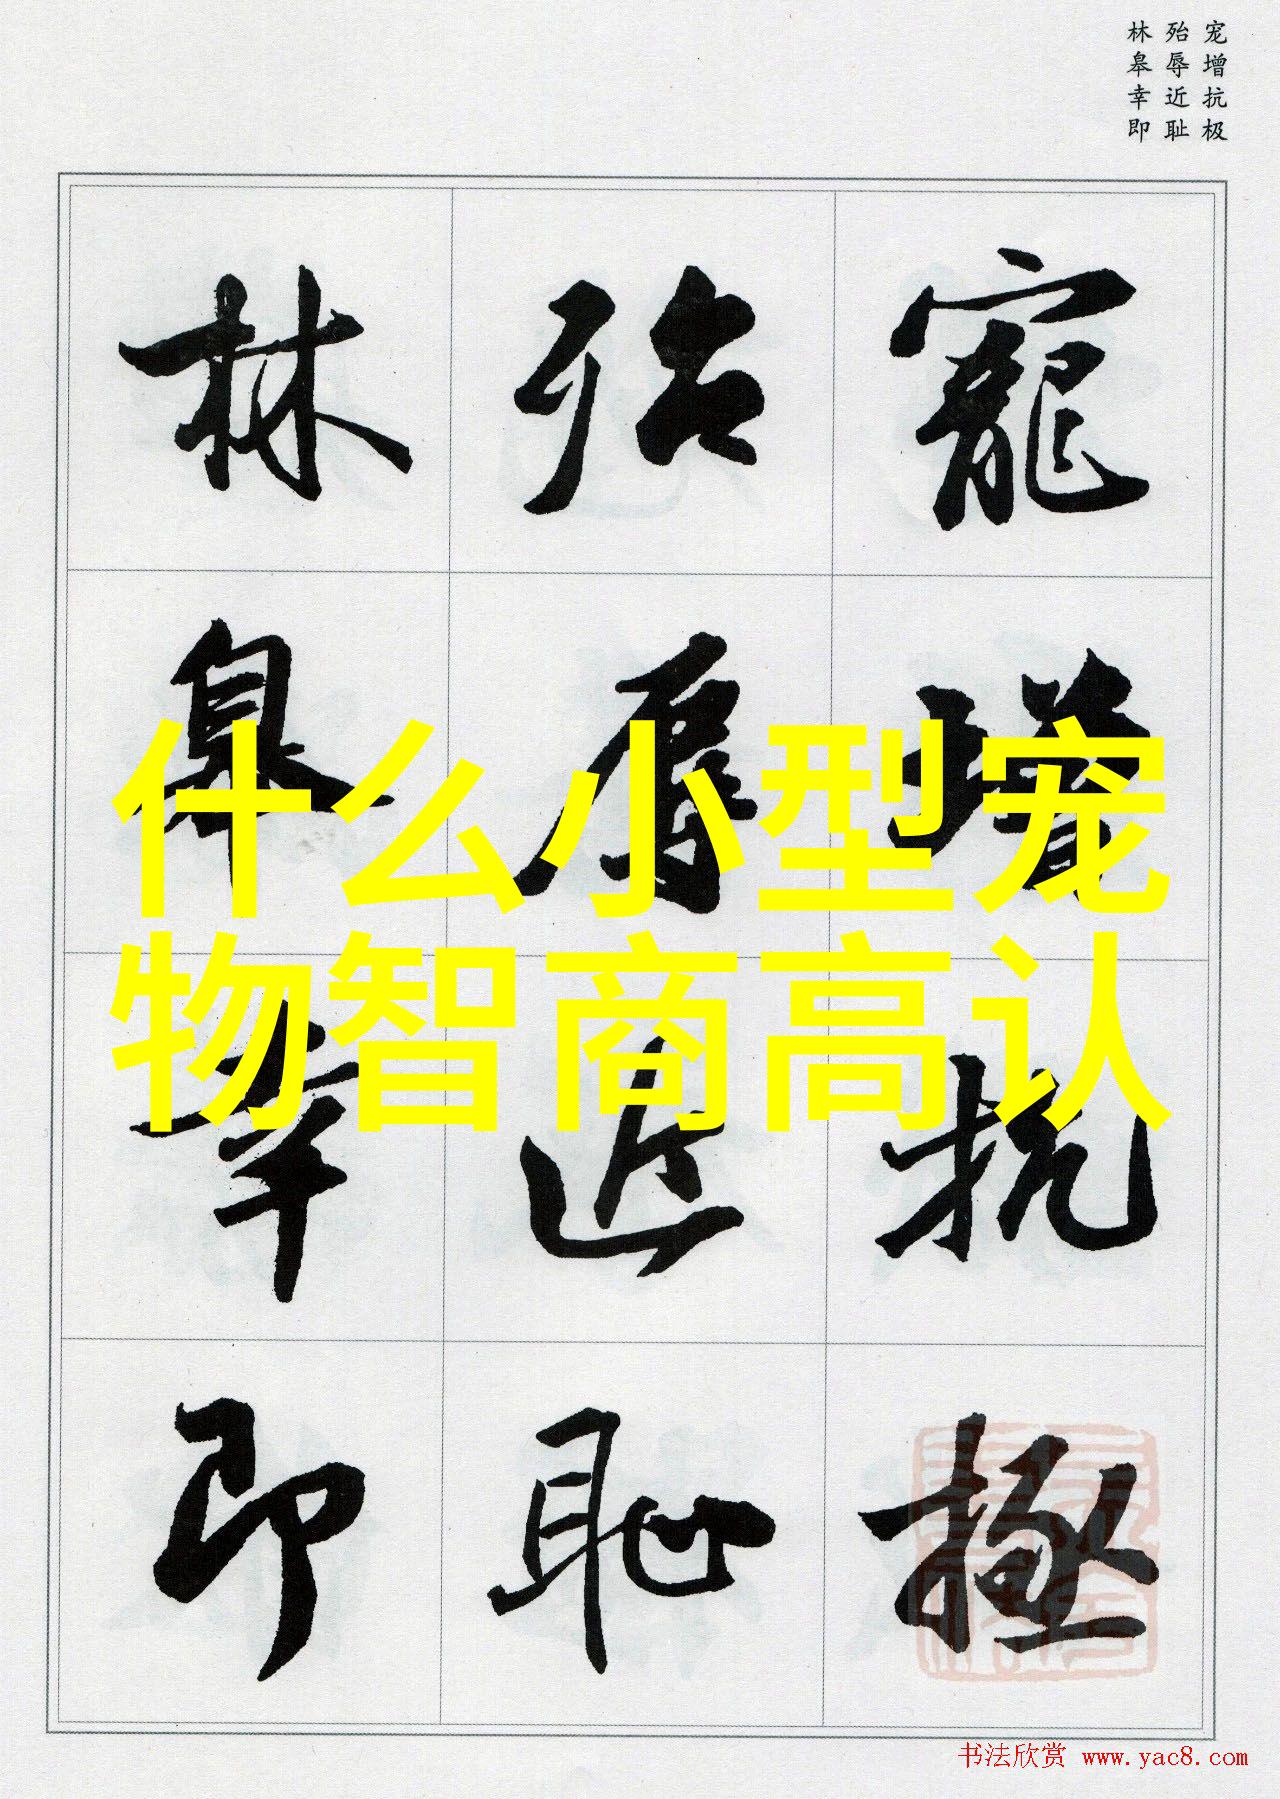 宠增抗极
殆辱近耻
林皋幸即
寵增抗極
殆辱近恥
林皋幸即
什么小型宠
物智商高认
书法欣赏 www.yac8.com